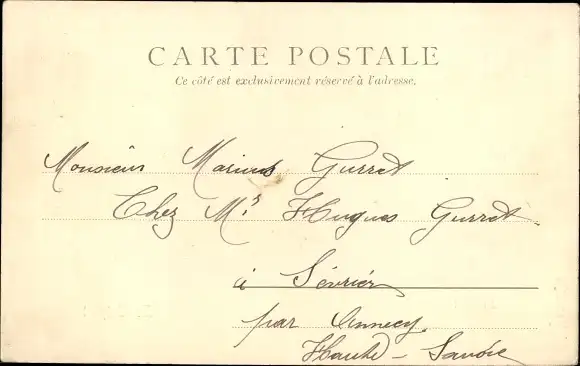 CARTE POSTALE
Ce côté est exclusivement réservé à l'adresse.
Monsieur Marius Gurret
Chez Mr Hugues Gurret
à Sévrier
par Annecy
Haute-Savoie